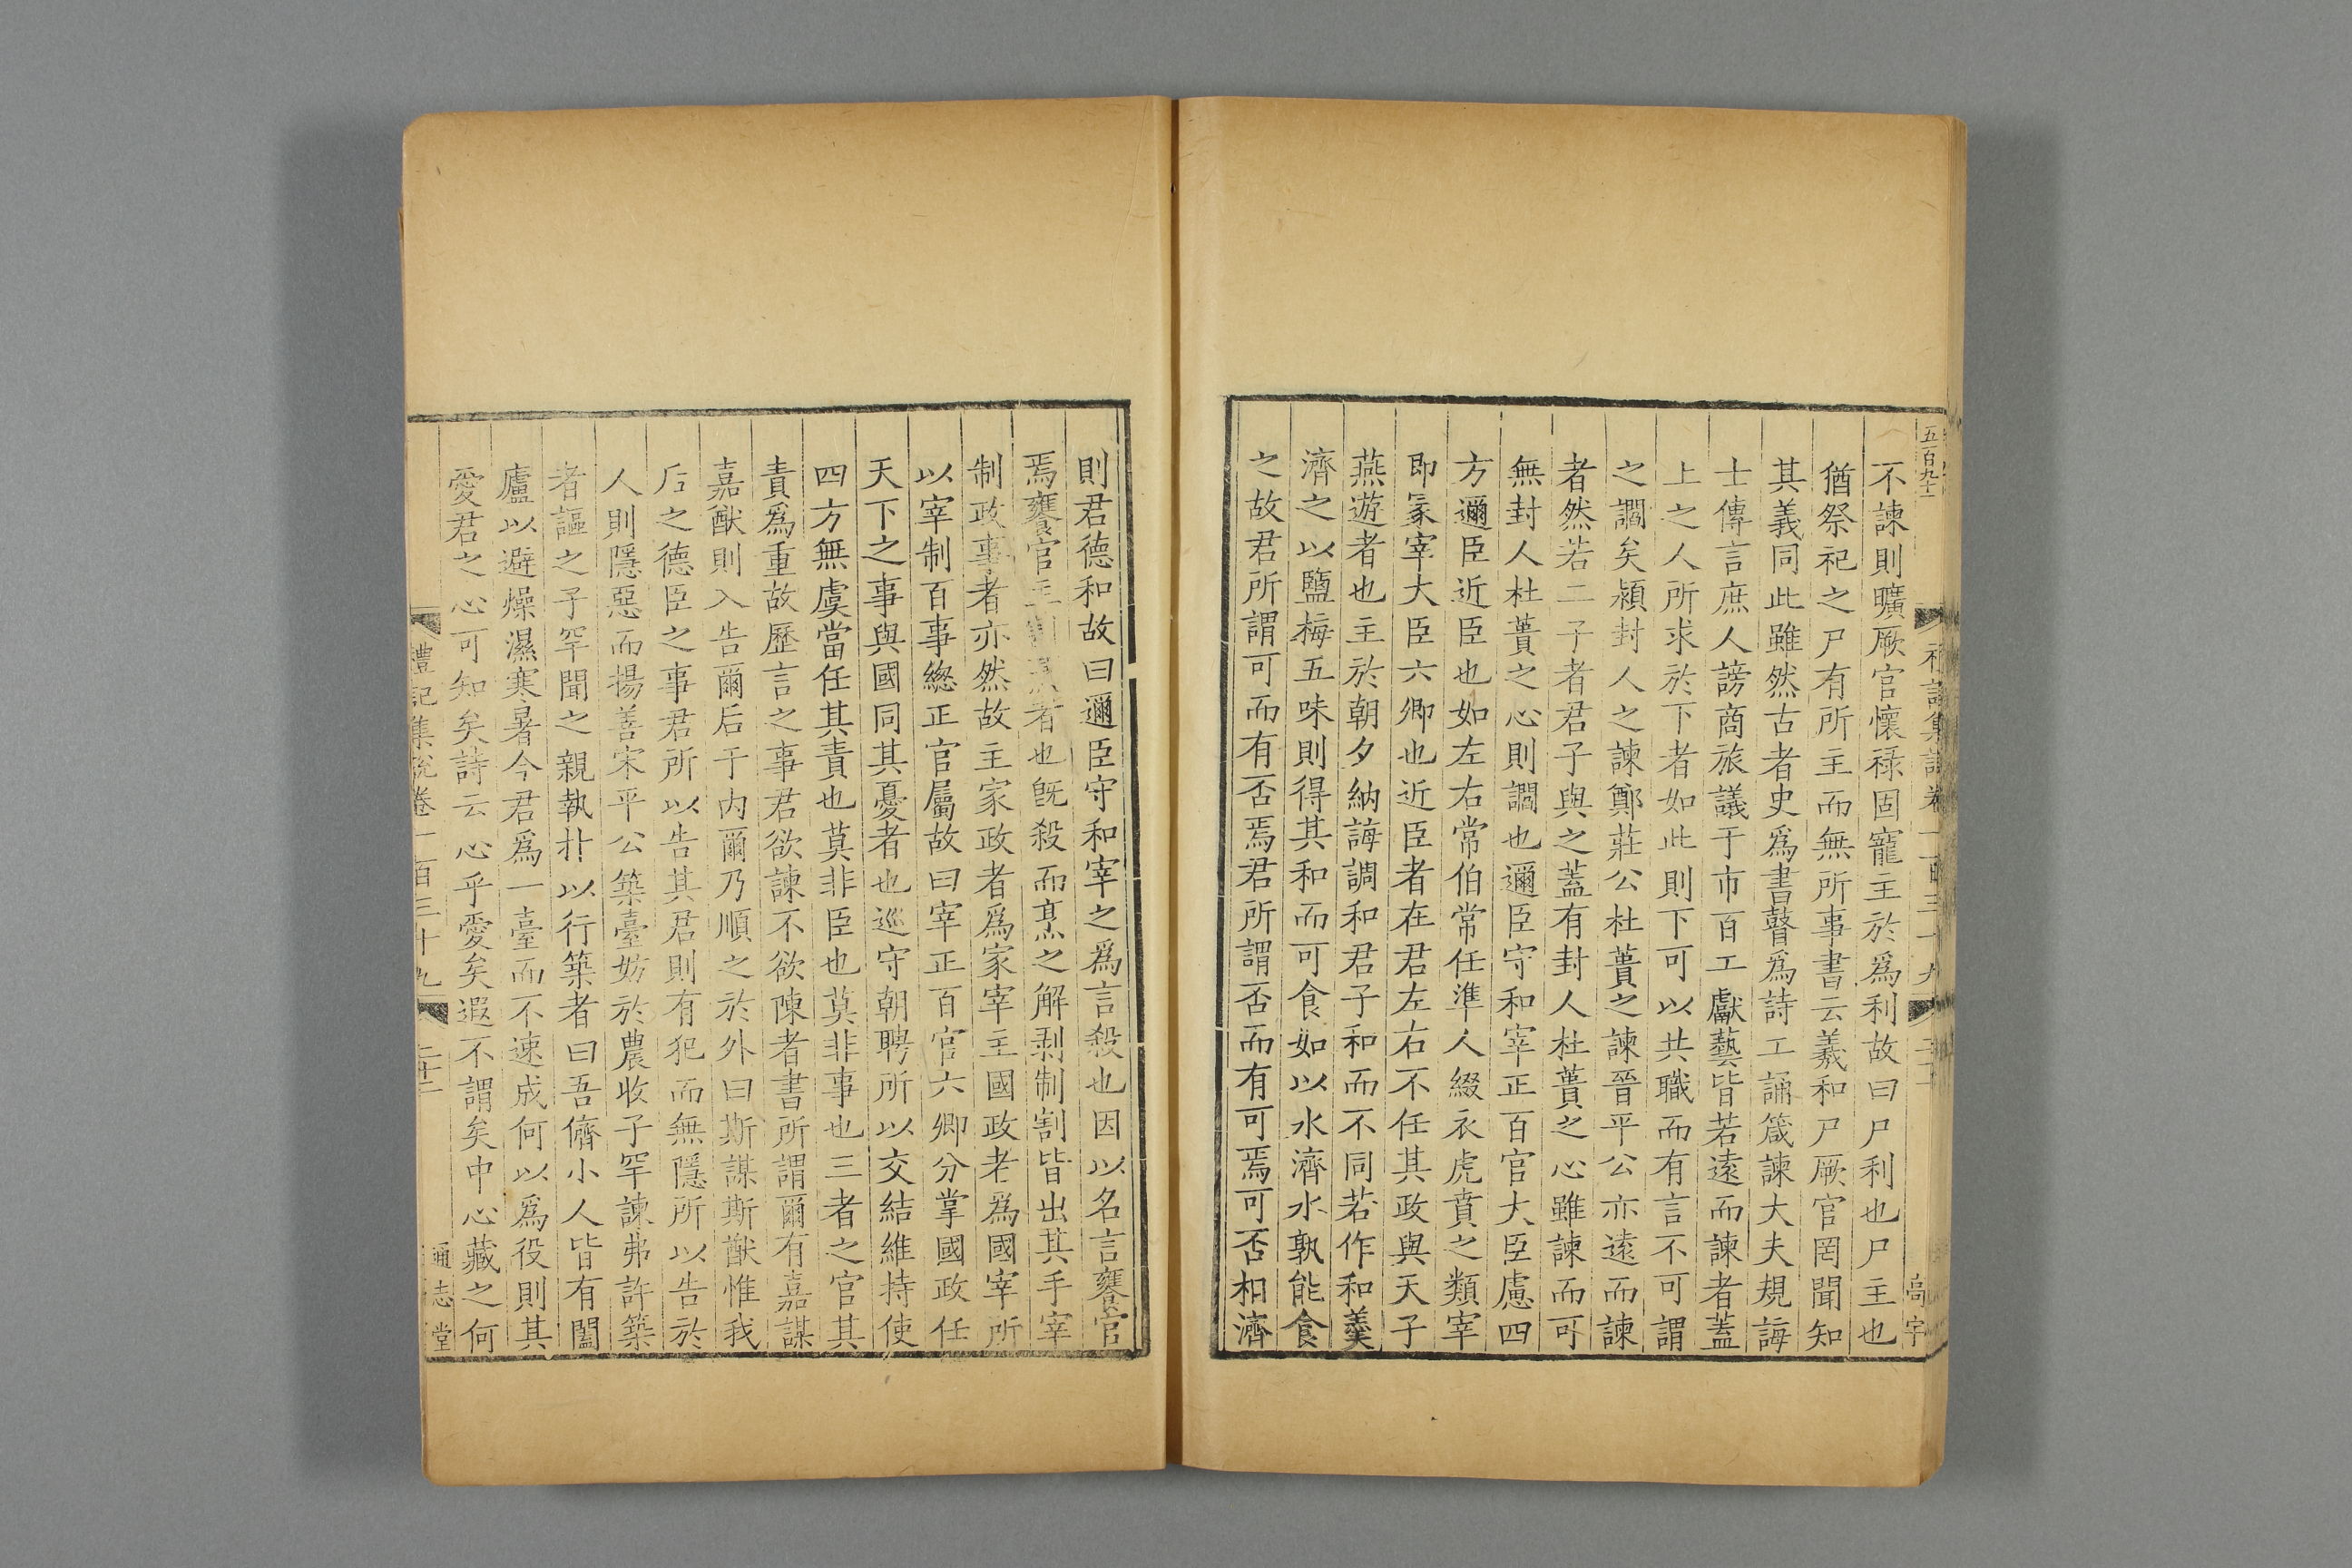 五百九十二
高宇
不諫則曠厥官懷祿固寵主於爲利故曰尸利也尸主也
猶祭祀之尸有所主而無所事書云羲和尸厥官罔聞知
其義同此雖然古者史爲書瞽爲詩工誦箴諫大夫規誨
士傳言庶人謗商旅議于市百工獻藝皆若遠而諫者蓋
上之人所求於下者如此則下可以共職而有言不可謂
之讇矣潁封人之諫鄭莊公杜蕢之諫晉平公亦遠而諫
者然若二子者君子與之蓋有封人杜蕢之心雖諫而可
無封人杜蕢之心則讇也邇臣守和宰正百官大臣慮四
方邇臣近臣也如左右常伯常任準人綴衣虎賁之類宰
即冡宰大臣六卿也近臣者在君左右不任其政與天子
燕遊者也主於朝夕納誨調和君子和而不同若作和羹
濟之以鹽梅五味則得其和而可食如以水濟水孰能食
之故君所謂可而有否焉君所謂否而有可焉可否相濟
則君德和故曰邇臣守和宰之爲言殺也因以名言饔官
焉饔官主者也旣殺而烹之解剥制割皆出其手宰
制政事者亦然故主家政者爲家宰主國政者爲國宰所
以宰制百事緫正官屬故曰宰正百官六卿分掌國政任
天下之事與國同其憂者也巡守朝聘所以交結維持使
四方無虞當任其責也莫非臣也莫非事也三者之官其
責爲重故歷言之事君欲諫不欲陳者書所謂爾有嘉謀
嘉猷則入告爾后于内爾乃順之於外曰斯謀斯猷惟我
后之德臣之事君所以告其君則有犯而無隱所以告於
人則隱惡而揚善宋平公築臺妨於農收子罕諫弗許築
者謳之子罕聞之親執朴以行築者曰吾儕小人皆有闔
廬以避燥濕寒暑今君爲一臺而不速成何以爲役則其
愛君之心可知矣詩云心乎愛矣遐不謂矣中心藏之何
禮記集說卷一百三十九
二十二
通志堂